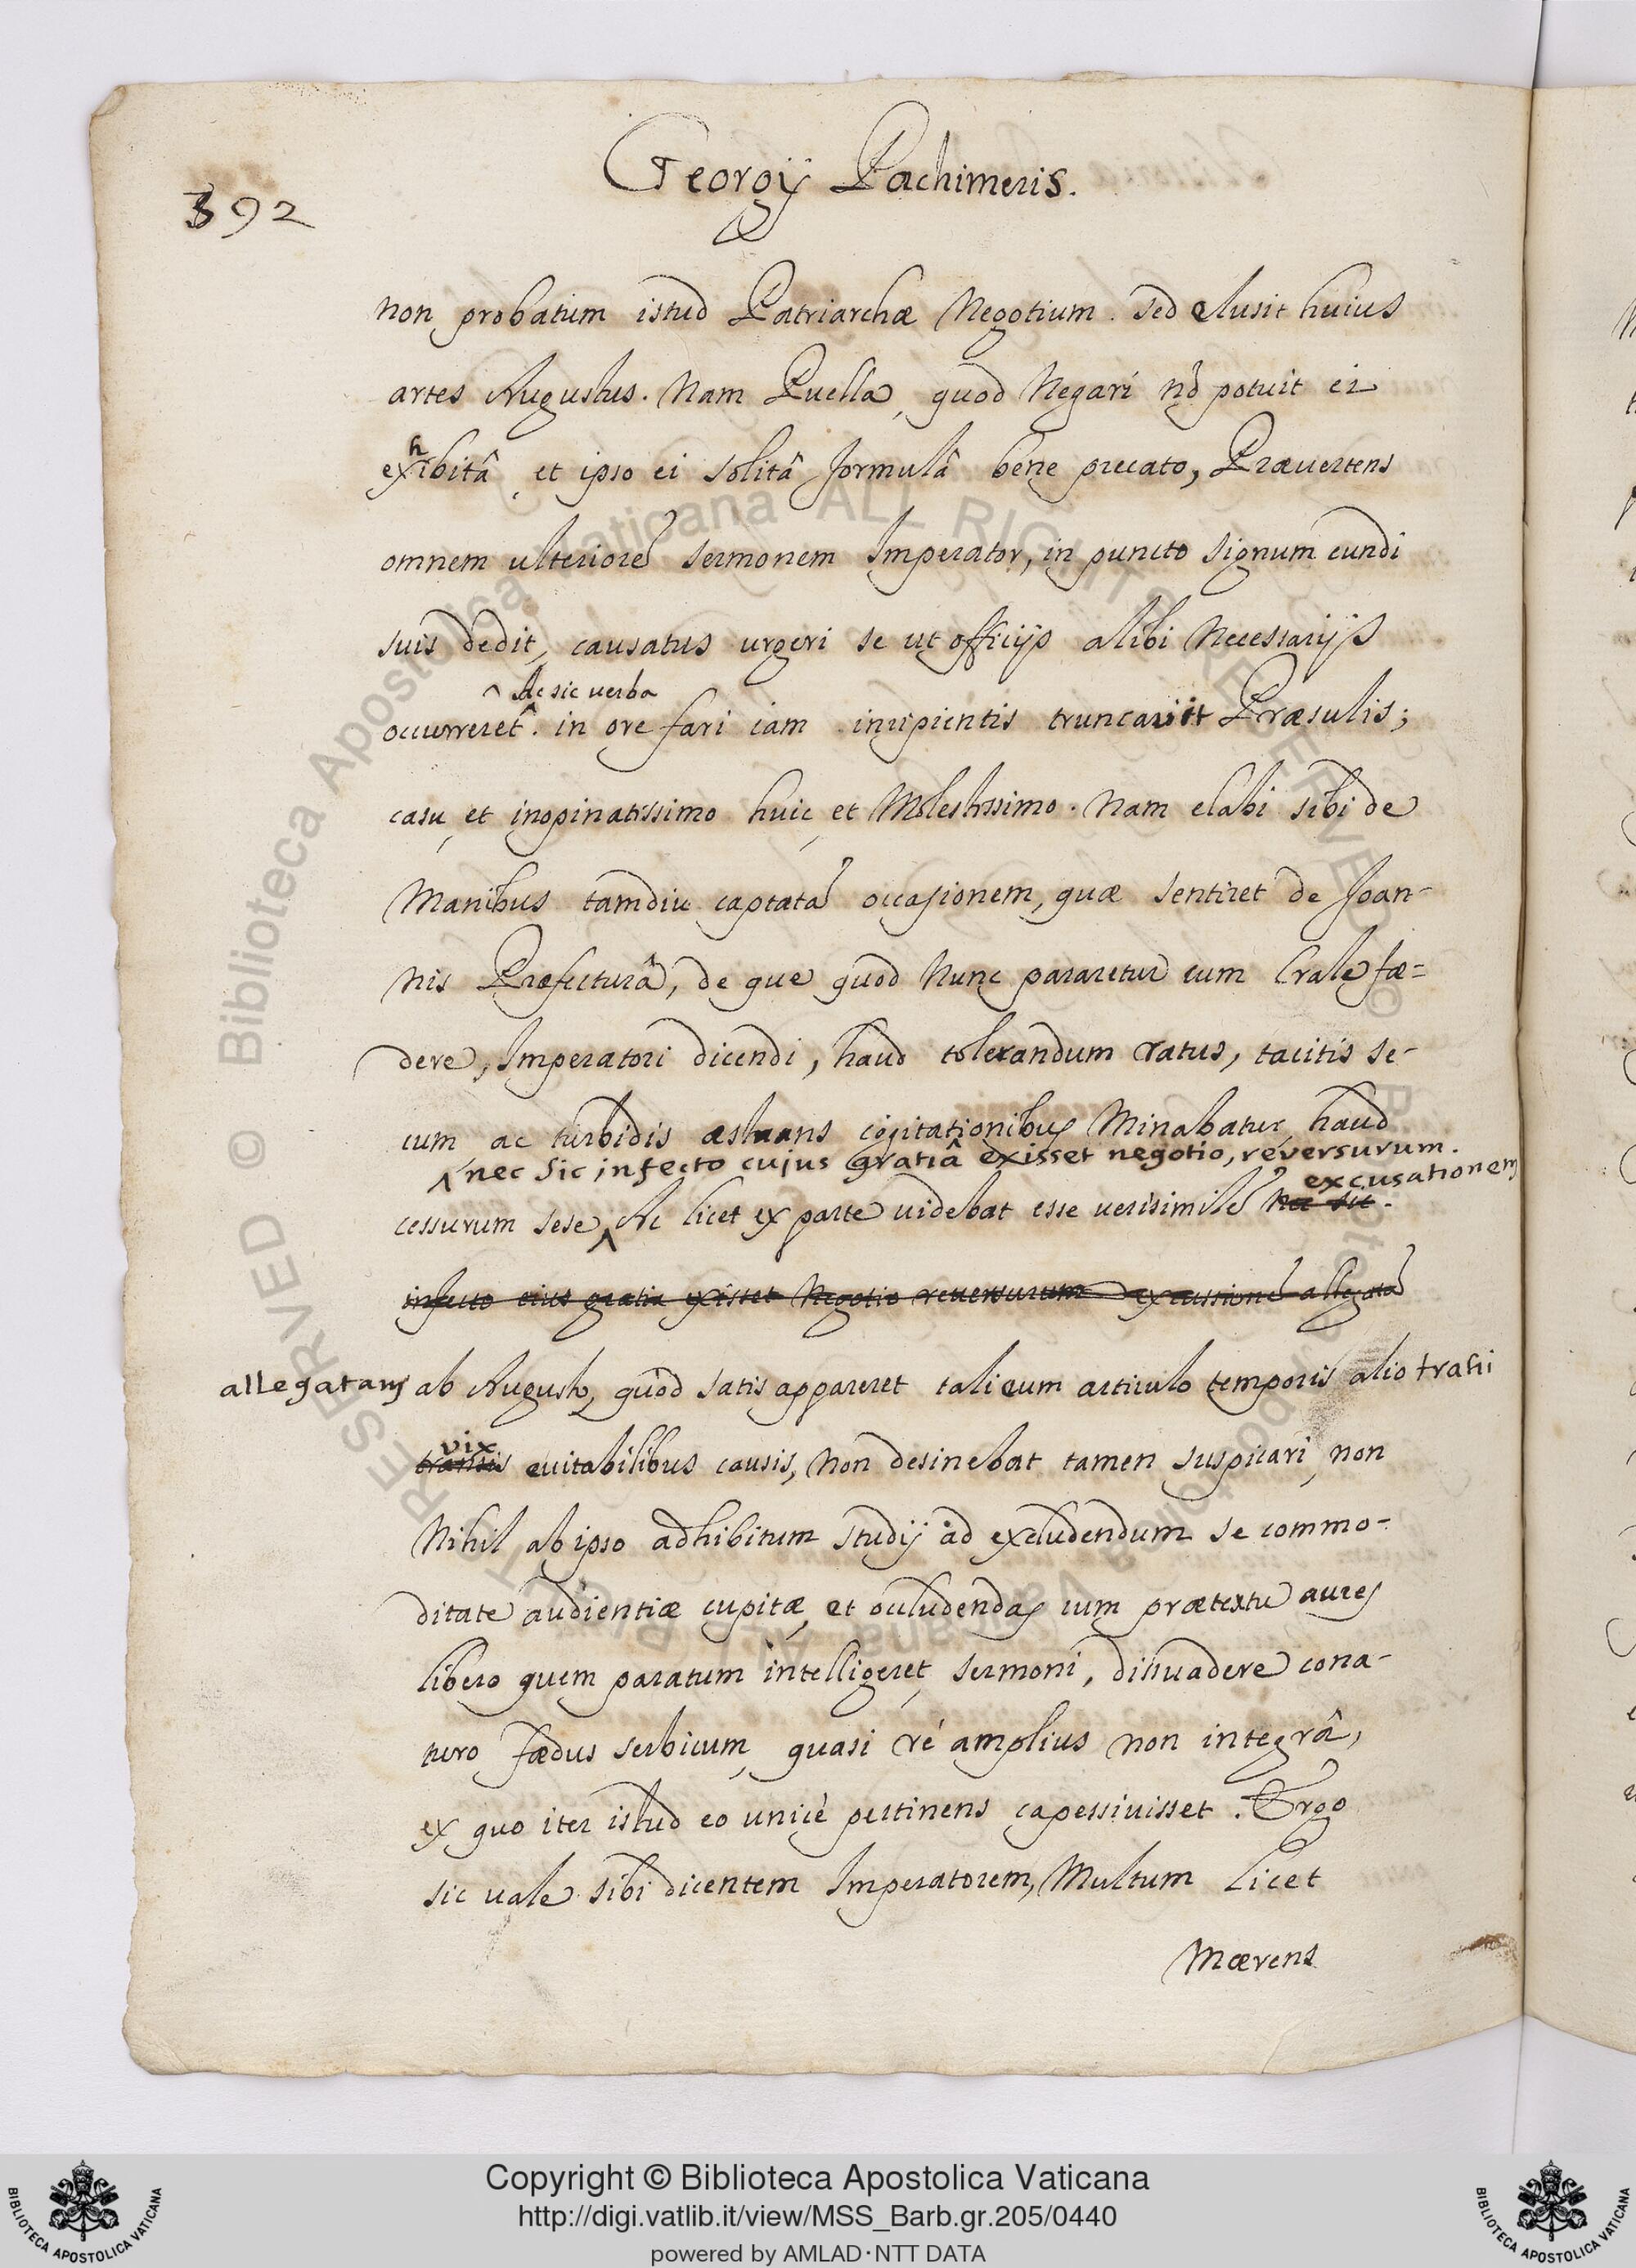 Georgij Pachimeris.
392
non probatum istud Patriarchæ Negotium. Sed elusit huius
artes Augustus. Nam Puella, quod Negari nō potuit ei
exhibitâ, et ipso ei solitâ formulâ bene precato, Præuertens
omnem ulteriorē sermonem Imperator, in puncto signum eundi
suis dedit, causatus urgeri se ut officijs alibi Necessarijs
^ Ac sic uerba
occurreret. in ore fari iam incipientis truncavit Præsulis;
casu et inopinatissimo huic et Molestissimo. Nam elabi sibi de
Manibus tamdiu captatā occasionem, quæ sentiret de Joan-
nis Præfecturâ, de que quod Nunc pararetur cum Crale fæ=
dere, Imperatori dicendi, haud tolerandum ratus, tacitis se-
cum ac turbidis æstuans cogitationibus Minabatur haud
^ nec sic infecto cujus gratiâ exisset negotio, reversurum.
excusationem
cessurum sese ^ Ac licet ex parte uidebat esse uerisimilē nec sic.
infecto eius gratia exisset Negotio reuersurum excussionē allegatā
allegatam ab Augusto, quòd satis appareret tali eum articulo temporis alio trahi
vix
euitabilibus causis, non desinebat tamen suspicari, non
Nihil ab ipso adhibitum studij ad excludendum se commo-
ditate audientiæ cupitæ, et occludendas cum prætextu aures
libero quem paratum intelligeret sermoni, dissuadere cona-
turo fædus serbicum, quasi rê amplius non integrâ,
ex quo iter istud eo unicè pertinens capessiuisset. Ergo
sic uale sibi dicentem Imperatorem, Multum licet
Mœrens
Copyright © Biblioteca Apostolica Vaticana
http://digi.vatlib.it/view/MSS_Barb.gr.205/0440
powered by AMLAD·NTT DATA
BIBLIOTECA APOSTOLICA VATICANA
BIBLIOTECA APOSTOLICA VATICANA